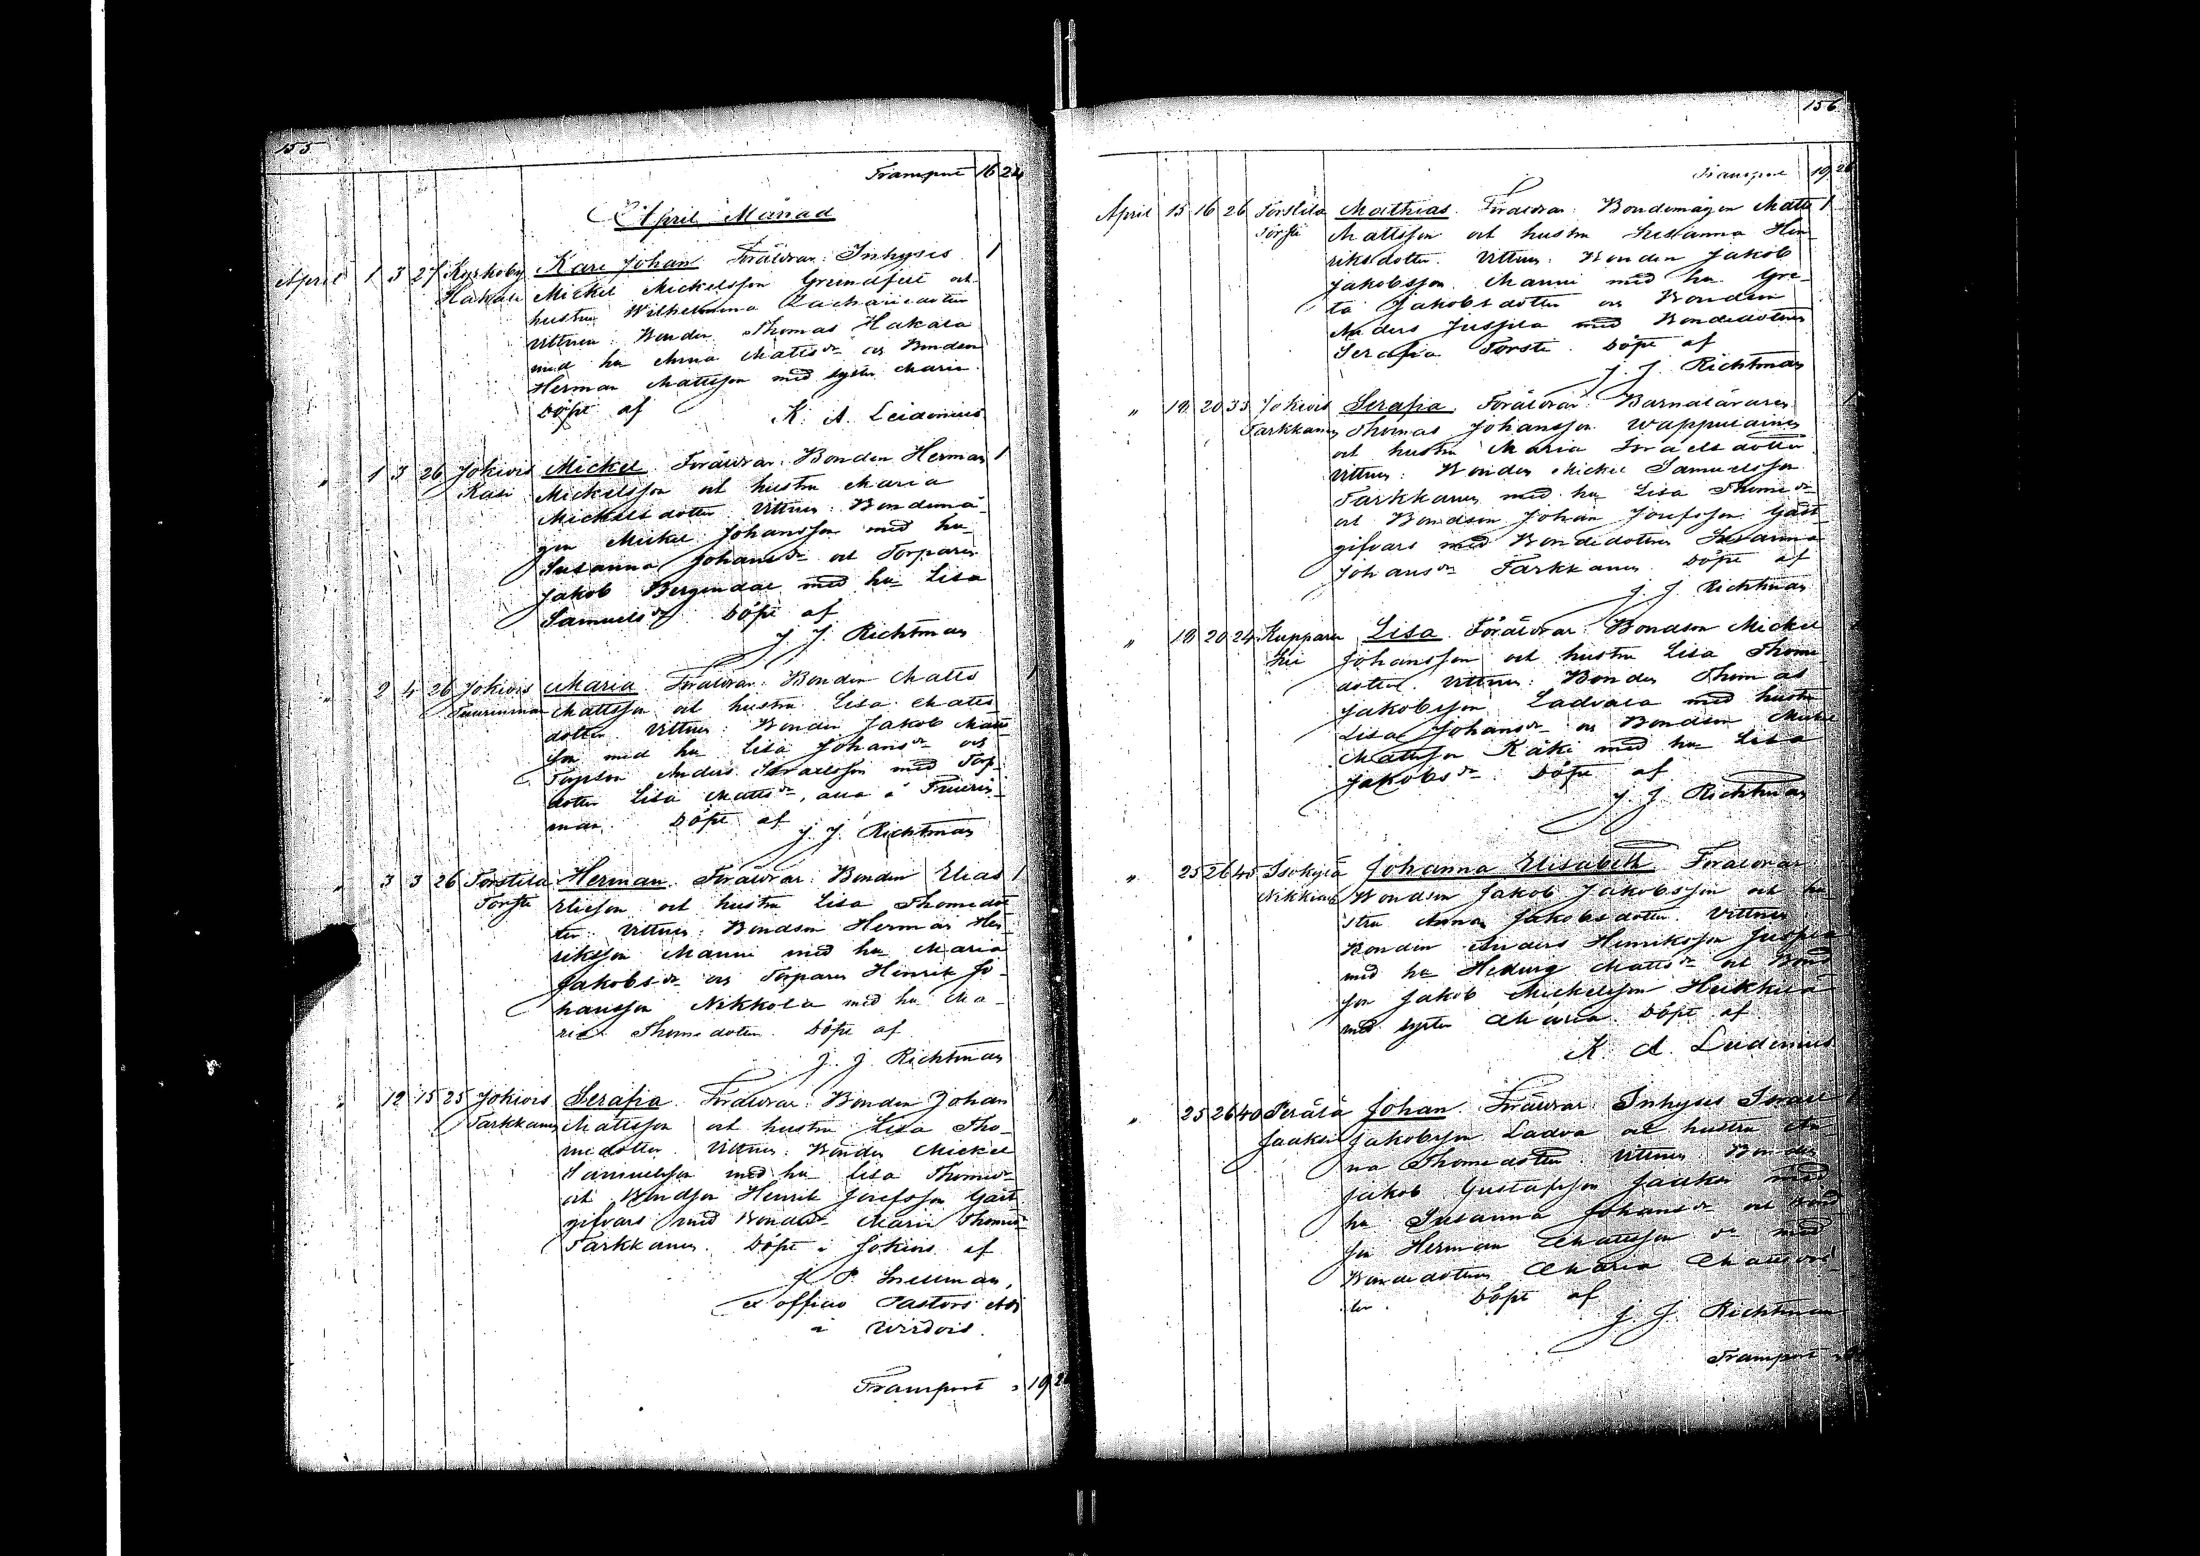 155
Transport 16 24
April Månad
April 1 3 27 Kyrkoby Karl Johan. Föräldrar: Inhyses 1
Hakala Mickel Mickelsson Greindfelt och
hustru Wilhelmina Zachariedotter
Vittnen: Bonden Thomas Hakala
med hu Anna Mattsdr och Bonden
Herman Mattsson med syster Maria.
Döpt af K. A. Leidenius
" 1 3 26 Jokivis Mickel. Föräldrar: Bonden Herman 1
Kasi Mickelsson och hustru Maria
Mickelsdotter. Vittnen: Bondemå-
gen Mickel Johansson med hu
Susanna Johansdr och Torparen
Jakob Bergendal med hu Lisa
Samuelsdr Döpt af
J. J. Richtman
" 2 4 26 Jokivis Maria. Föräldrar: Bonden Matts 1
Tuurinman Mattsson och hustru Lisa Matts
dotter. Vittnen: Bonden Jakob Matts
son med hu Lisa Johansdr och
Torpson Anders Israelsson med Torp-
dotter Lisa Mattsdr, alla å Tuurin-
man. Döpt af
J. J. Richtman
" 3 3 26 Torstila Herman. Föräldrar: Bonden Elias 1
Torsti Eliesson och hustru Lisa Thomedot
ter. Vittnen: Bondson Herman Hen
riksson Manni med hu Maria
Jakobsdr och Torparen Henrik Jo-
hansson Nikkola med hu Ma-
ria Thomedotter. Döpt af
J. J. Richtman
" 12 15 25 Jokivis Serafia. Föräldrar: Bonden Johan
Tarkkanen Mattsson och hustru Lisa Tho-
medotter. Vittnen: Bonden Mickel
Samuelsson med hu Lisa Thomedr
och Bondson Henrik Josefsson Gäst
gifvars med Bondedr Maria Thomedr
Tarkkanen. Döpt i Jokivis af
J. P. Snellman,
ex officio Pastors Adj
i Wirdois.
Transport 19
156
Transport 19 26
April 15 16 26 Torstila Mathias. Föräldrar: Bondemågen Matts 1
Torsti Mattsson och hustru Susanna Hen
riksdotter. Vittnen: Bonden Jakob
Jakobsson Manni med hu Gre-
ta Jakobsdotter och Bonden
Anders Jussila med Bondedottren
Serafia Torsti. Döpt af
J. J. Richtman
" 18 20 33 Jokivis Serafia. Föräldrar: Barnaläraren 1
Tarkkanen Thomas Johansson Wappulainen
och hustru Maria Israelsdotter
Vittnen: Bonden Mickel Samuelsson
Tarkkanen med hu Lisa Thomedr
och Bondson Johan Josefsson Gäst
gifvars med Bondedottren Susanna
Johansdr Tarkkanen Döpt af
J. J. Richtman
" 18 20 24 Lisa. Föräldrar: Bondson Mickel
Johansson och hustru Lisa Thome
dotter. Vittnen: Bonden Thomas
Jakobsson Ladvala med hustru
Lisa Johansdr och Bondson Mickel
Mattsson Käki med hu Lisa
Jakobsdr. Döpt af
J. J. Richtman
" 25 26 40 Isokylä Johanna Elisabeth. Föräldrar
Nikkilä Bondson Jakob Jakobsson och hu
stru Anna Jakobsdotter. Vittnen
Bonden Anders Henriksson Juspila
med hu Hedvig Mattsdr och Bond
son Jakob Mickelsson Heikkilä
med syster Maria. Döpt af
K. A. Leidenius
" 25 26 40 Perälä Johan. Föräldrar: Inhyses Israel 1
Jaakon Jakobsson Ladva och hustru An-
na Thomedotter. Vittnen: Bonden
Jakob Gustafsson Jaakon med
hu Susanna Johansdr och Bond
son Herman Mattsson dr med
Bondedottren Maria Mattsdot-
ter. Döpt af
J. J. Richtman
Transport